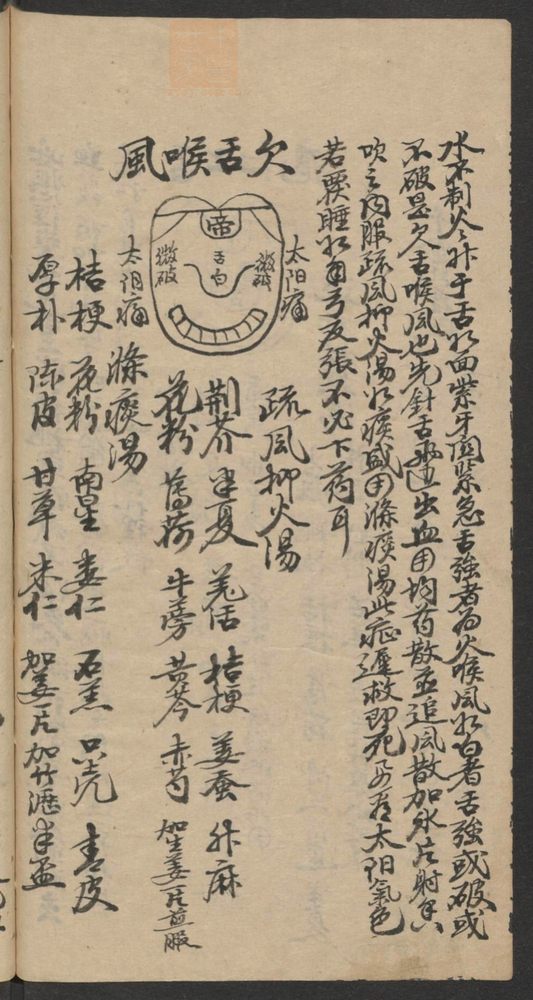 水不制火合于舌如面紫牙関緊急舌強者為火喉風如白者舌強或破或
不破是欠舌喉風也先針舌邊出血用均药散並追風散加氷片射香
吹之内服疏風抑火湯如痰盛用滌痰湯此症遲救即死另看太阳氣色
若要睡如角弓反張不必下药耳
欠舌喉風
帝
舌白
微破
微破
太阳痛
太阳痛
疏風抑火湯
荊芥 半夏 羌活 桔梗 姜蚕 升麻
花粉 薄荷 牛蒡 黄芩 赤芍 加生姜一片煎服
滌痰湯
桔梗 花粉 南星 蒌仁 石羔 只壳 青皮
厚朴 陈皮 甘草 米仁 加姜一片加竹瀝半盃